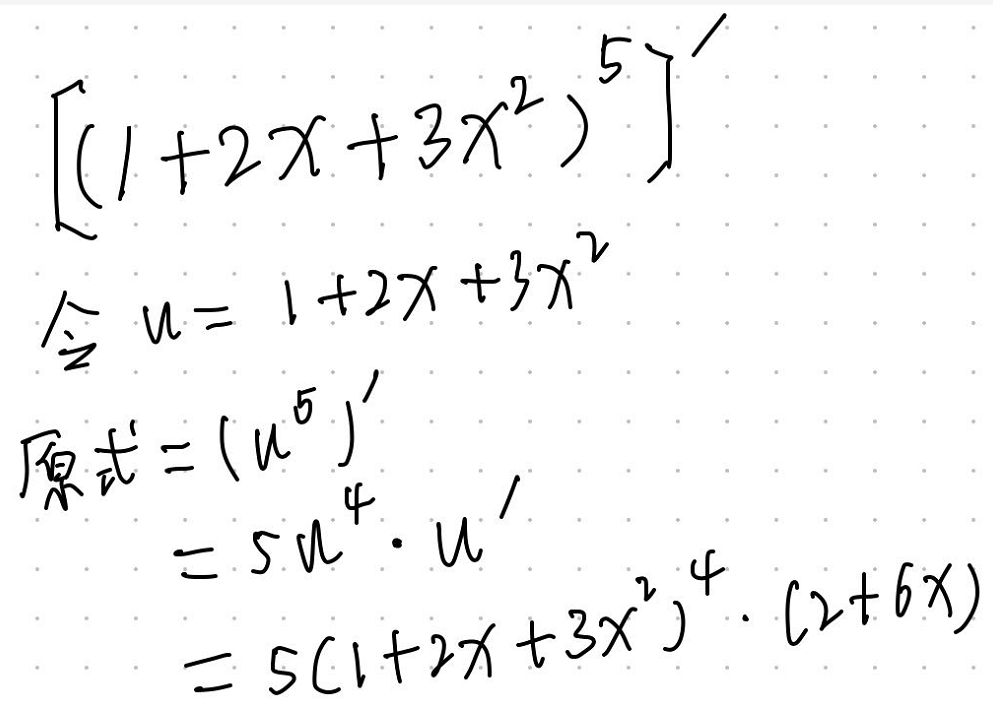 [(1+2x+3x²)⁵]′
令 u = 1+2x+3x²
原式 = (u⁵)′
= 5u⁴·u′
= 5(1+2x+3x²)⁴·(2+6x)